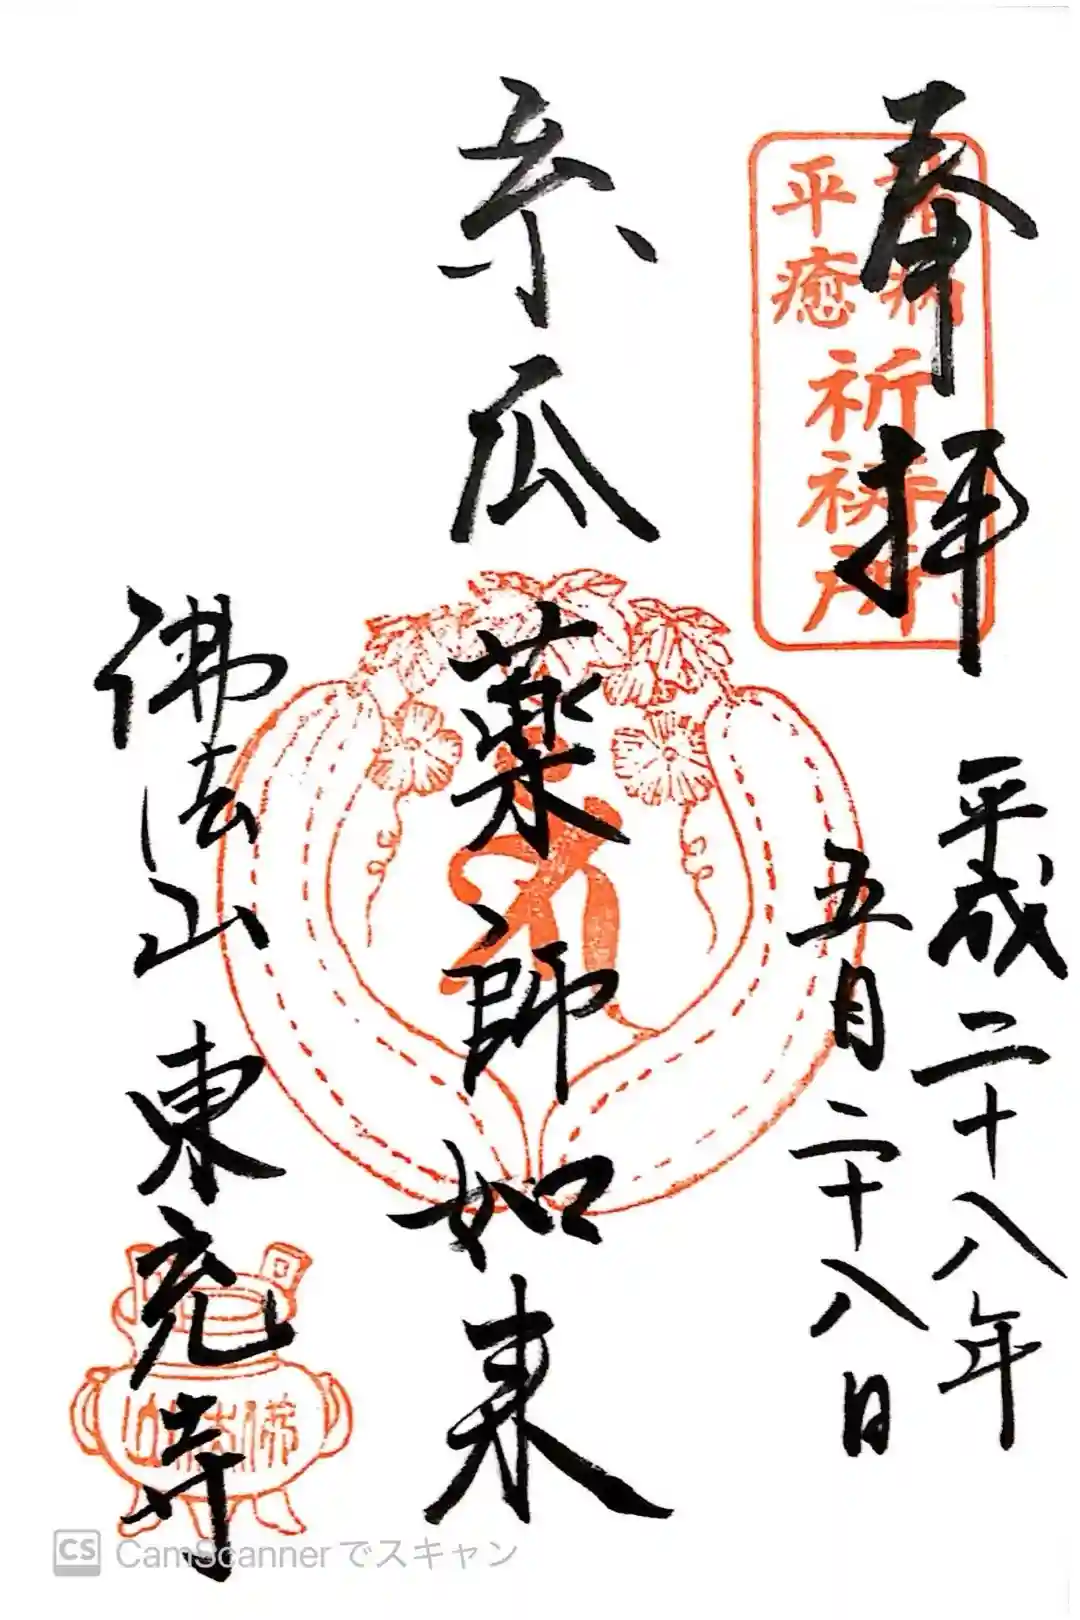 奉拝
諸病
平癒
祈祷所
平成二十八年
五月二十八日
糸瓜
薬師如来
佛法山
東充寺
佛法山
CS CamScannerでスキャン